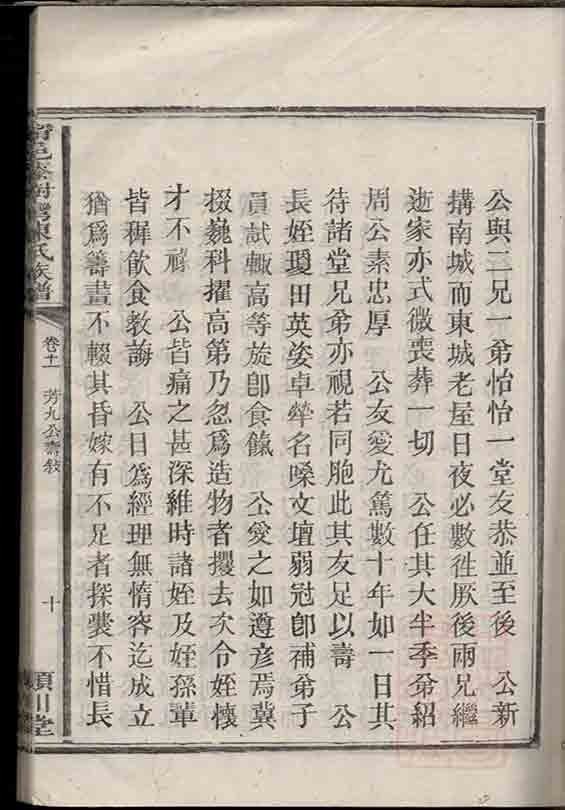 公與三兄一弟怡怡一堂友恭並至後　公新
搆南城而東城老屋日夜必數徃厥後兩兄繼
逝家亦式微喪葬一切　公任其大半季弟紹
周公素忠厚　公友愛尤篤數十年如一日其
待諸堂兄弟亦視若同胞此其友足以壽　公
長姪瓊田英姿卓犖名噪文壇弱冠卽補弟子
員試輙高等旋卽食餼　公愛之如遵彥焉冀
掇巍科擢高第乃忽爲造物者攫去次令姪懷
才不祿　公皆痛之甚深維時諸姪及姪孫輩
皆穉飮食教誨　公目爲經理無惰容迄成立
猶爲籌畫不輟其昏嫁有不足者探囊不惜長
陳氏族譜
卷十一　芳九公壽敍
十
潁川堂